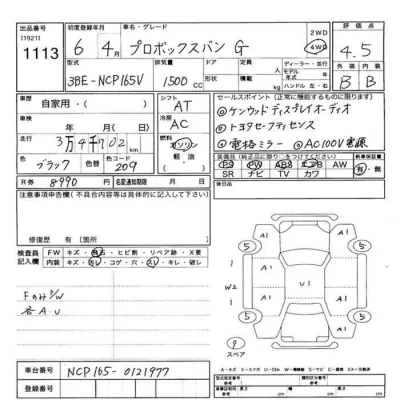 出品番号 [1921] 1113
初度登録年月 6年 4月
車名・グレード プロボックスバン G
2WD 4WD
評価点 4.5
型式 3BE-NCP165V
排気量 1500 CC
ドア 形状
定員 積載 名 kg
ディーラー・並行
モデル 年式 年
ハンドル 左・右
外装 内装 B B
車歴 自家用・( )
シフト AT
車検 年 月( )
冷房 AC
走行 3万4千702km
燃料 ガソリン 軽油 ( )
色 ブラック 色替 色コード 209
セールスポイント (正常に機能するものに限ります)
◎ケンウッドディスプレイオーディオ
◎トヨタセーフティセンス
◎電格ミラー ◎AC100V電源
装備品 (純正品に限り○をつけてください) 新車保証書
PS PW ABS エアB AW 有・無
SR ナビ TV カワ
R券 8990 円
名変通知期限 月 日
後日品
注意事項申告欄 (不具合内容等は具体的に記入して下さい)
修復歴 有 (箇所
検査員記入欄
FW キズ・飛石・ヒビ割・リペア跡・X要
内装 キズ・ヨレ・コゲ・穴・スレ・キレ・破レ
FのみP/W
各A.U
A1 A1
5 5
A1 A1
1 W2 U1 1
1
A1 A1
5 5
A1
スペア
車台番号 NCP165-0121977
登録番号